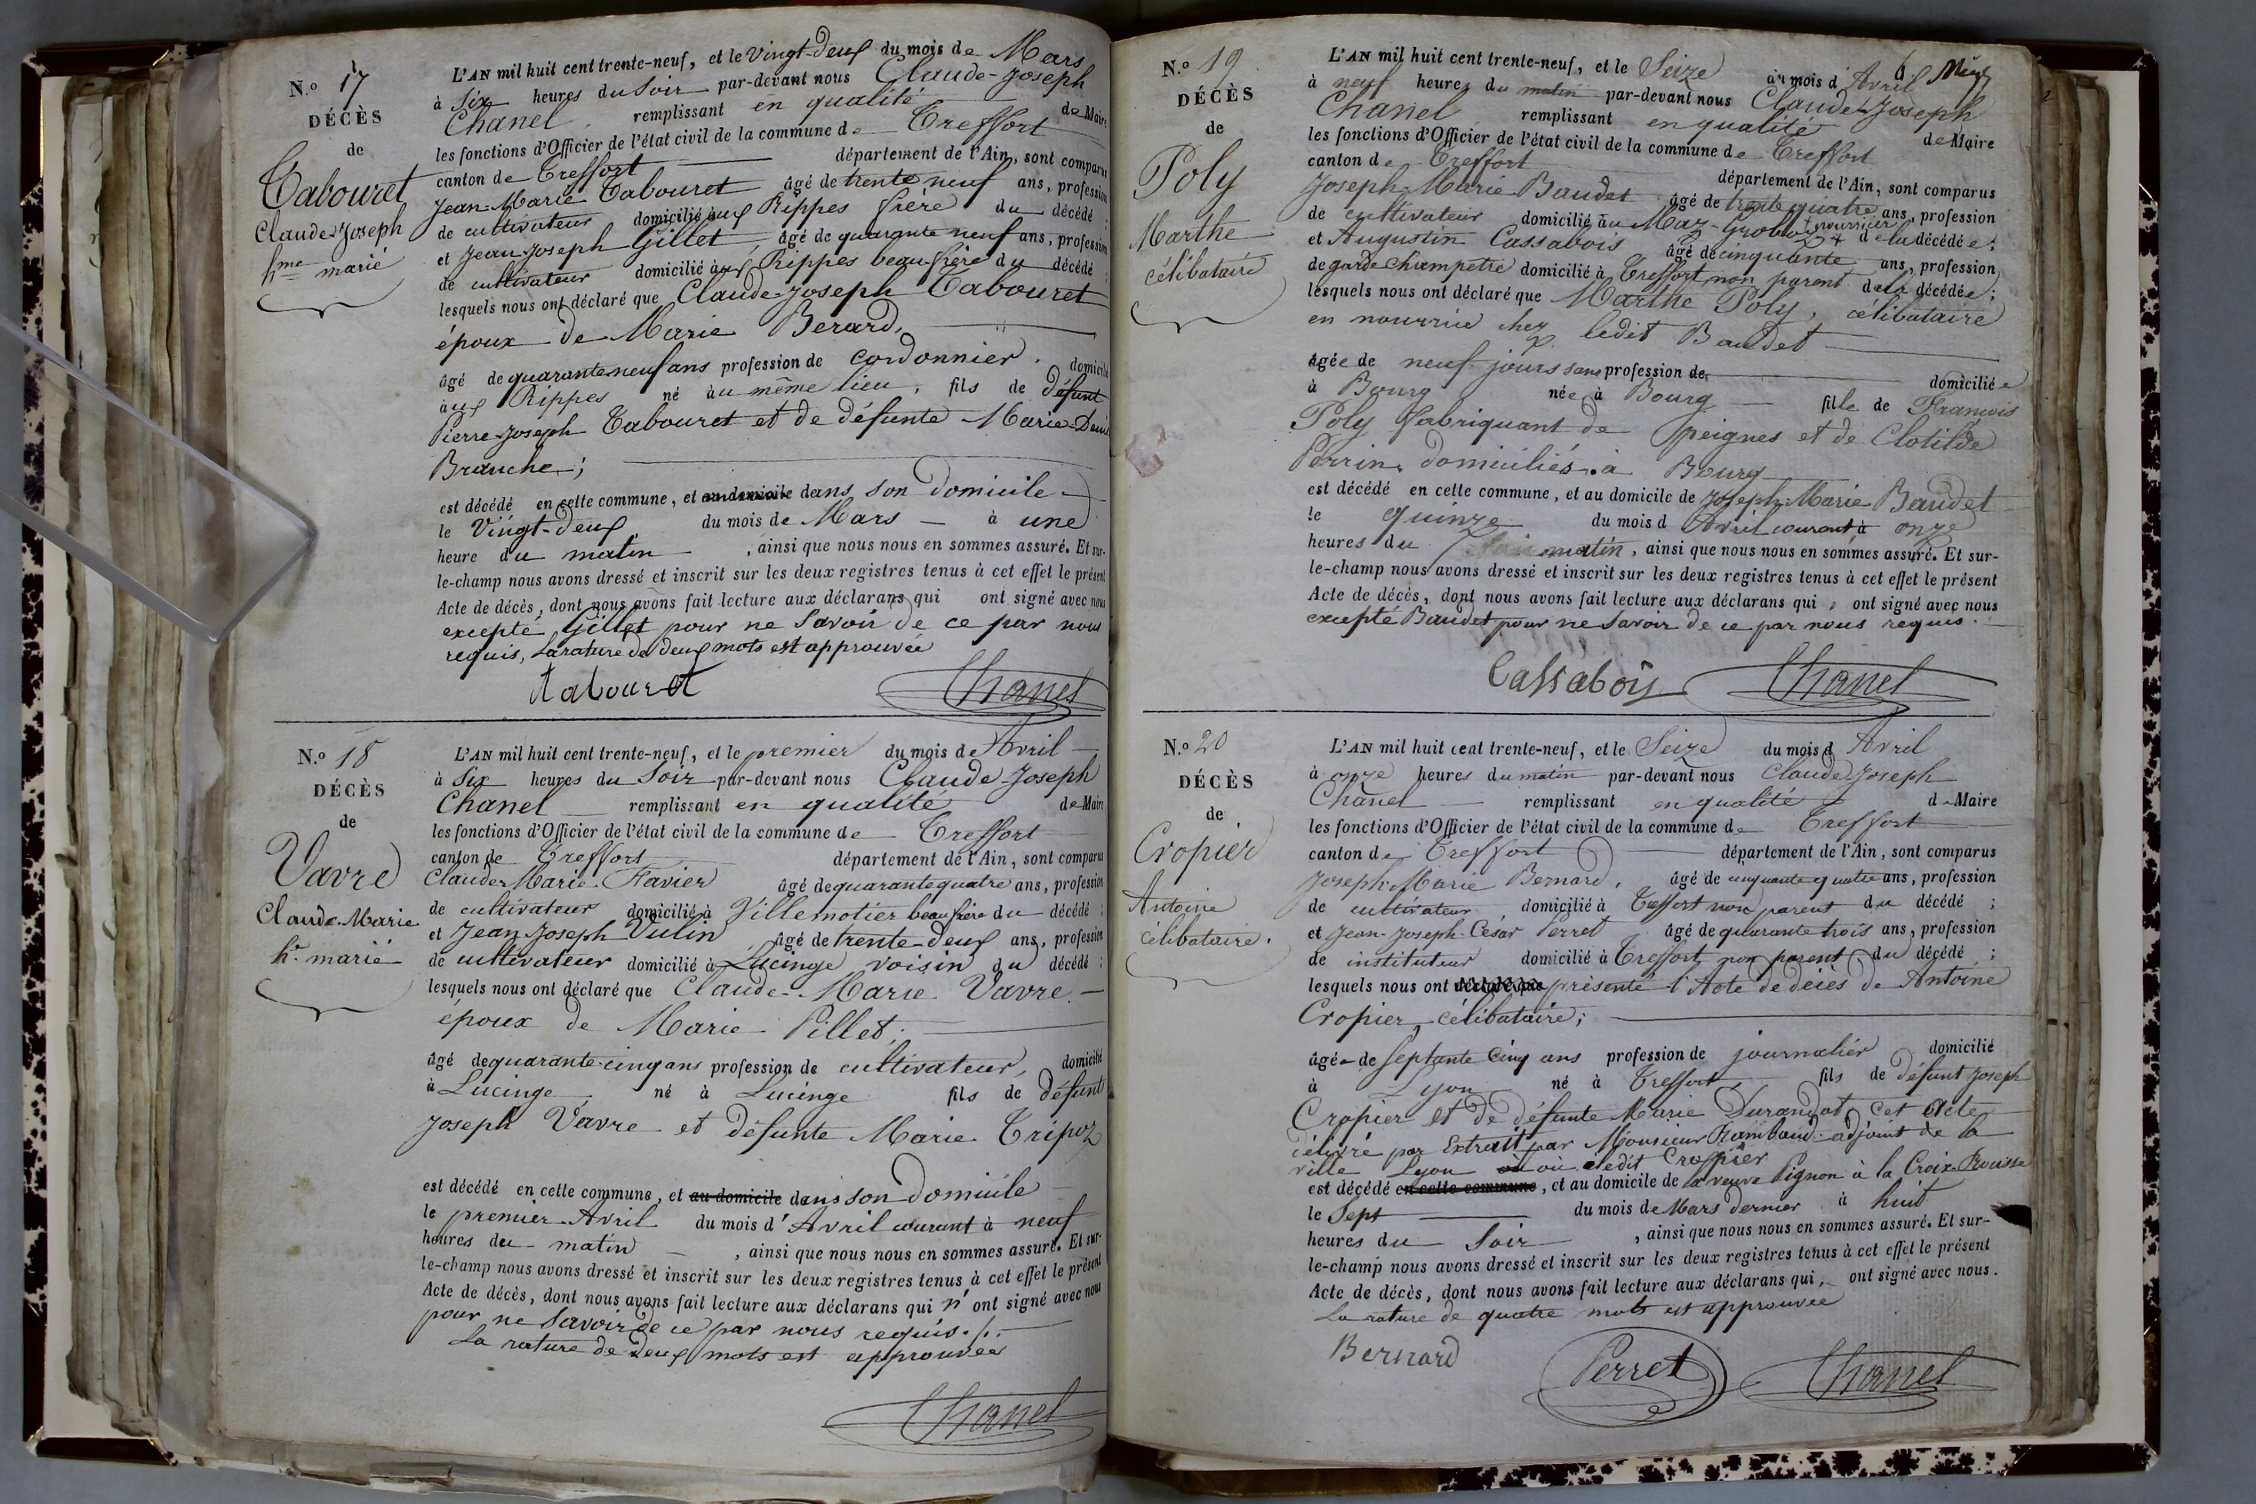 N.o 17
DÉCÈS
de
Tabouret
Claude-Joseph
hme marié
L'AN mil huit cent trente-neuf, et le Vingt-deux du mois de Mars
à Six heures du Soir par-devant nous Claude-Joseph
Chanel remplissant en qualité de Maire
les fonctions d'Officier de l'état civil de la commune de Treffort
canton de Treffort département de l'Ain, sont comparus
Jean-Marie Tabouret âgé de trente neuf ans, profession
de cultivateur domicilié aux Rippes frère du décédé ;
et Jean-Joseph Gillet âgé de quarante neuf ans, profession
de cultivateur domicilié aux Rippes beau-frère du décédé ;
lesquels nous ont déclaré que Claude-Joseph Tabouret
époux de Marie Berard,
âgé de quarante-neuf ans profession de cordonnier. domicilié
aux Rippes né au même lieu, fils de défunt
Pierre-Joseph Tabouret et de défunte Marie-Denise
Branche ;
est décédé en cette commune, et au domicile dans son Domicile
le Vingt-deux du mois de Mars à une
heure du matin , ainsi que nous nous en sommes assuré. Et sur-
le-champ nous avons dressé et inscrit sur les deux registres tenus à cet effet le présent
Acte de décès, dont nous avons fait lecture aux déclarans qui ont signé avec nous
excepté Gillet pour ne Savoir de ce par nous
requis, La rature de deux mots est approuvée
Tabouret Chanel
N.o 18
DÉCÈS
de
Vavre
Claude-Marie
h. marié
L'AN mil huit cent trente-neuf, et le premier du mois de Avril
à Six heures du Soir par-devant nous Claude-Joseph
Chanel remplissant en qualité de Maire
les fonctions d'Officier de l'état civil de la commune de Treffort
canton de Treffort département de l'Ain, sont comparus
Claude-Marie Favier âgé de quarante quatre ans, profession
de cultivateur domicilié à Villemotier beau frère du décédé ;
et Jean Joseph Vulin âgé de trente-deux ans, profession
de cultivateur domicilié à Lucinge voisin du décédé ;
lesquels nous ont déclaré que Claude-Marie Vavre
époux de Marie Pillet.
âgé de quarante-cinq ans profession de cultivateur, domicilié
à Lucinge né à Lucinge fils de défunt
Joseph Vavre et défunte Marie Tripoz
est décédé en cette commune, et au domicile dans son Domicile
le premier Avril du mois d'Avril courant à neuf
heures du matin , ainsi que nous nous en sommes assuré. Et sur-
le-champ nous avons dressé et inscrit sur les deux registres tenus à cet effet le présent
Acte de décès, dont nous avons fait lecture aux déclarans qui n'ont signé avec nous
pour ne Savoir de ce par nous requis./.
La rature de deux mots est approuvée
Chanel
N.o 19
DÉCÈS
de
Poly
Marthe
célibataire
L'AN mil huit cent trente-neuf, et le Seize du mois d'Avril
à neuf heures du matin par-devant nous Claude-Joseph
Chanel remplissant en qualité de Maire
les fonctions d'Officier de l'état civil de la commune de Treffort
canton de Treffort département de l'Ain, sont comparus
Joseph-Marie Baudet âgé de trente quatre ans, profession
de cultivateur domicilié au Maz-Groboz nourricier de la décédée ;
et Augustin Cassabois âgé de cinquante ans, profession
de garde champetre domicilié à Treffort non parent de la décédée ;
lesquels nous ont déclaré que Marthe Poly, célibataire
en nourrice chez ledit Baudet
âgée de neuf jours sans profession de domiciliée
à Bourg née à Bourg fille de François
Poly fabriquant de peignes et de Clotilde
Perrin domiciliés à Bourg
est décédé en cette commune, et au domicile de Joseph-Marie Baudet
le quinze du mois d Avril courant à onze
heures du matin, ainsi que nous nous en sommes assuré. Et sur-
le-champ nous avons dressé et inscrit sur les deux registres tenus à cet effet le présent
Acte de décès, dont nous avons fait lecture aux déclarans qui ont signé avec nous
excepté Baudet pour ne Savoir de ce par nous requis.
Cassabois Chanel
N.o 20
DÉCÈS
de
Cropier
Antoine
célibataire.
L'AN mil huit cent trente-neuf, et le Seize du mois d Avril
à onze heures du matin par-devant nous Claude-Joseph
Chanel remplissant en qualité de Maire
les fonctions d'Officier de l'état civil de la commune de Treffort
canton de Treffort département de l'Ain, sont comparus
Joseph-Marie Bernard, âgé de cinquante quatre ans, profession
de cultivateur domicilié à Treffort non parent du décédé ;
et Jean-Joseph-César Perret âgé de quarante trois ans, profession
de instituteur domicilié à Treffort non parent du décédé ;
lesquels nous ont déclaré que présenté l'Acte de décès de Antoine
Cropier, célibataire ;
âgé de Septante Cinq ans profession de journalier domicilié
à Lyon né à Treffort fils de défunt Joseph
Cropier et de défunte Marie Durandot, cet Acte
délivré par Extrait par Monsieur Rambaud adjoint de la
ville Lyon où ledit Cropier
est décédé en cette commune, et au domicile de la veuve Pignon à la Croix-Rousse
le Sept du mois de Mars dernier à huit
heures du Soir , ainsi que nous nous en sommes assuré. Et sur-
le-champ nous avons dressé et inscrit sur les deux registres tenus à cet effet le présent
Acte de décès, dont nous avons fait lecture aux déclarans qui, ont signé avec nous.
La rature de quatre mots est approuvée
Bernard Perret Chanel